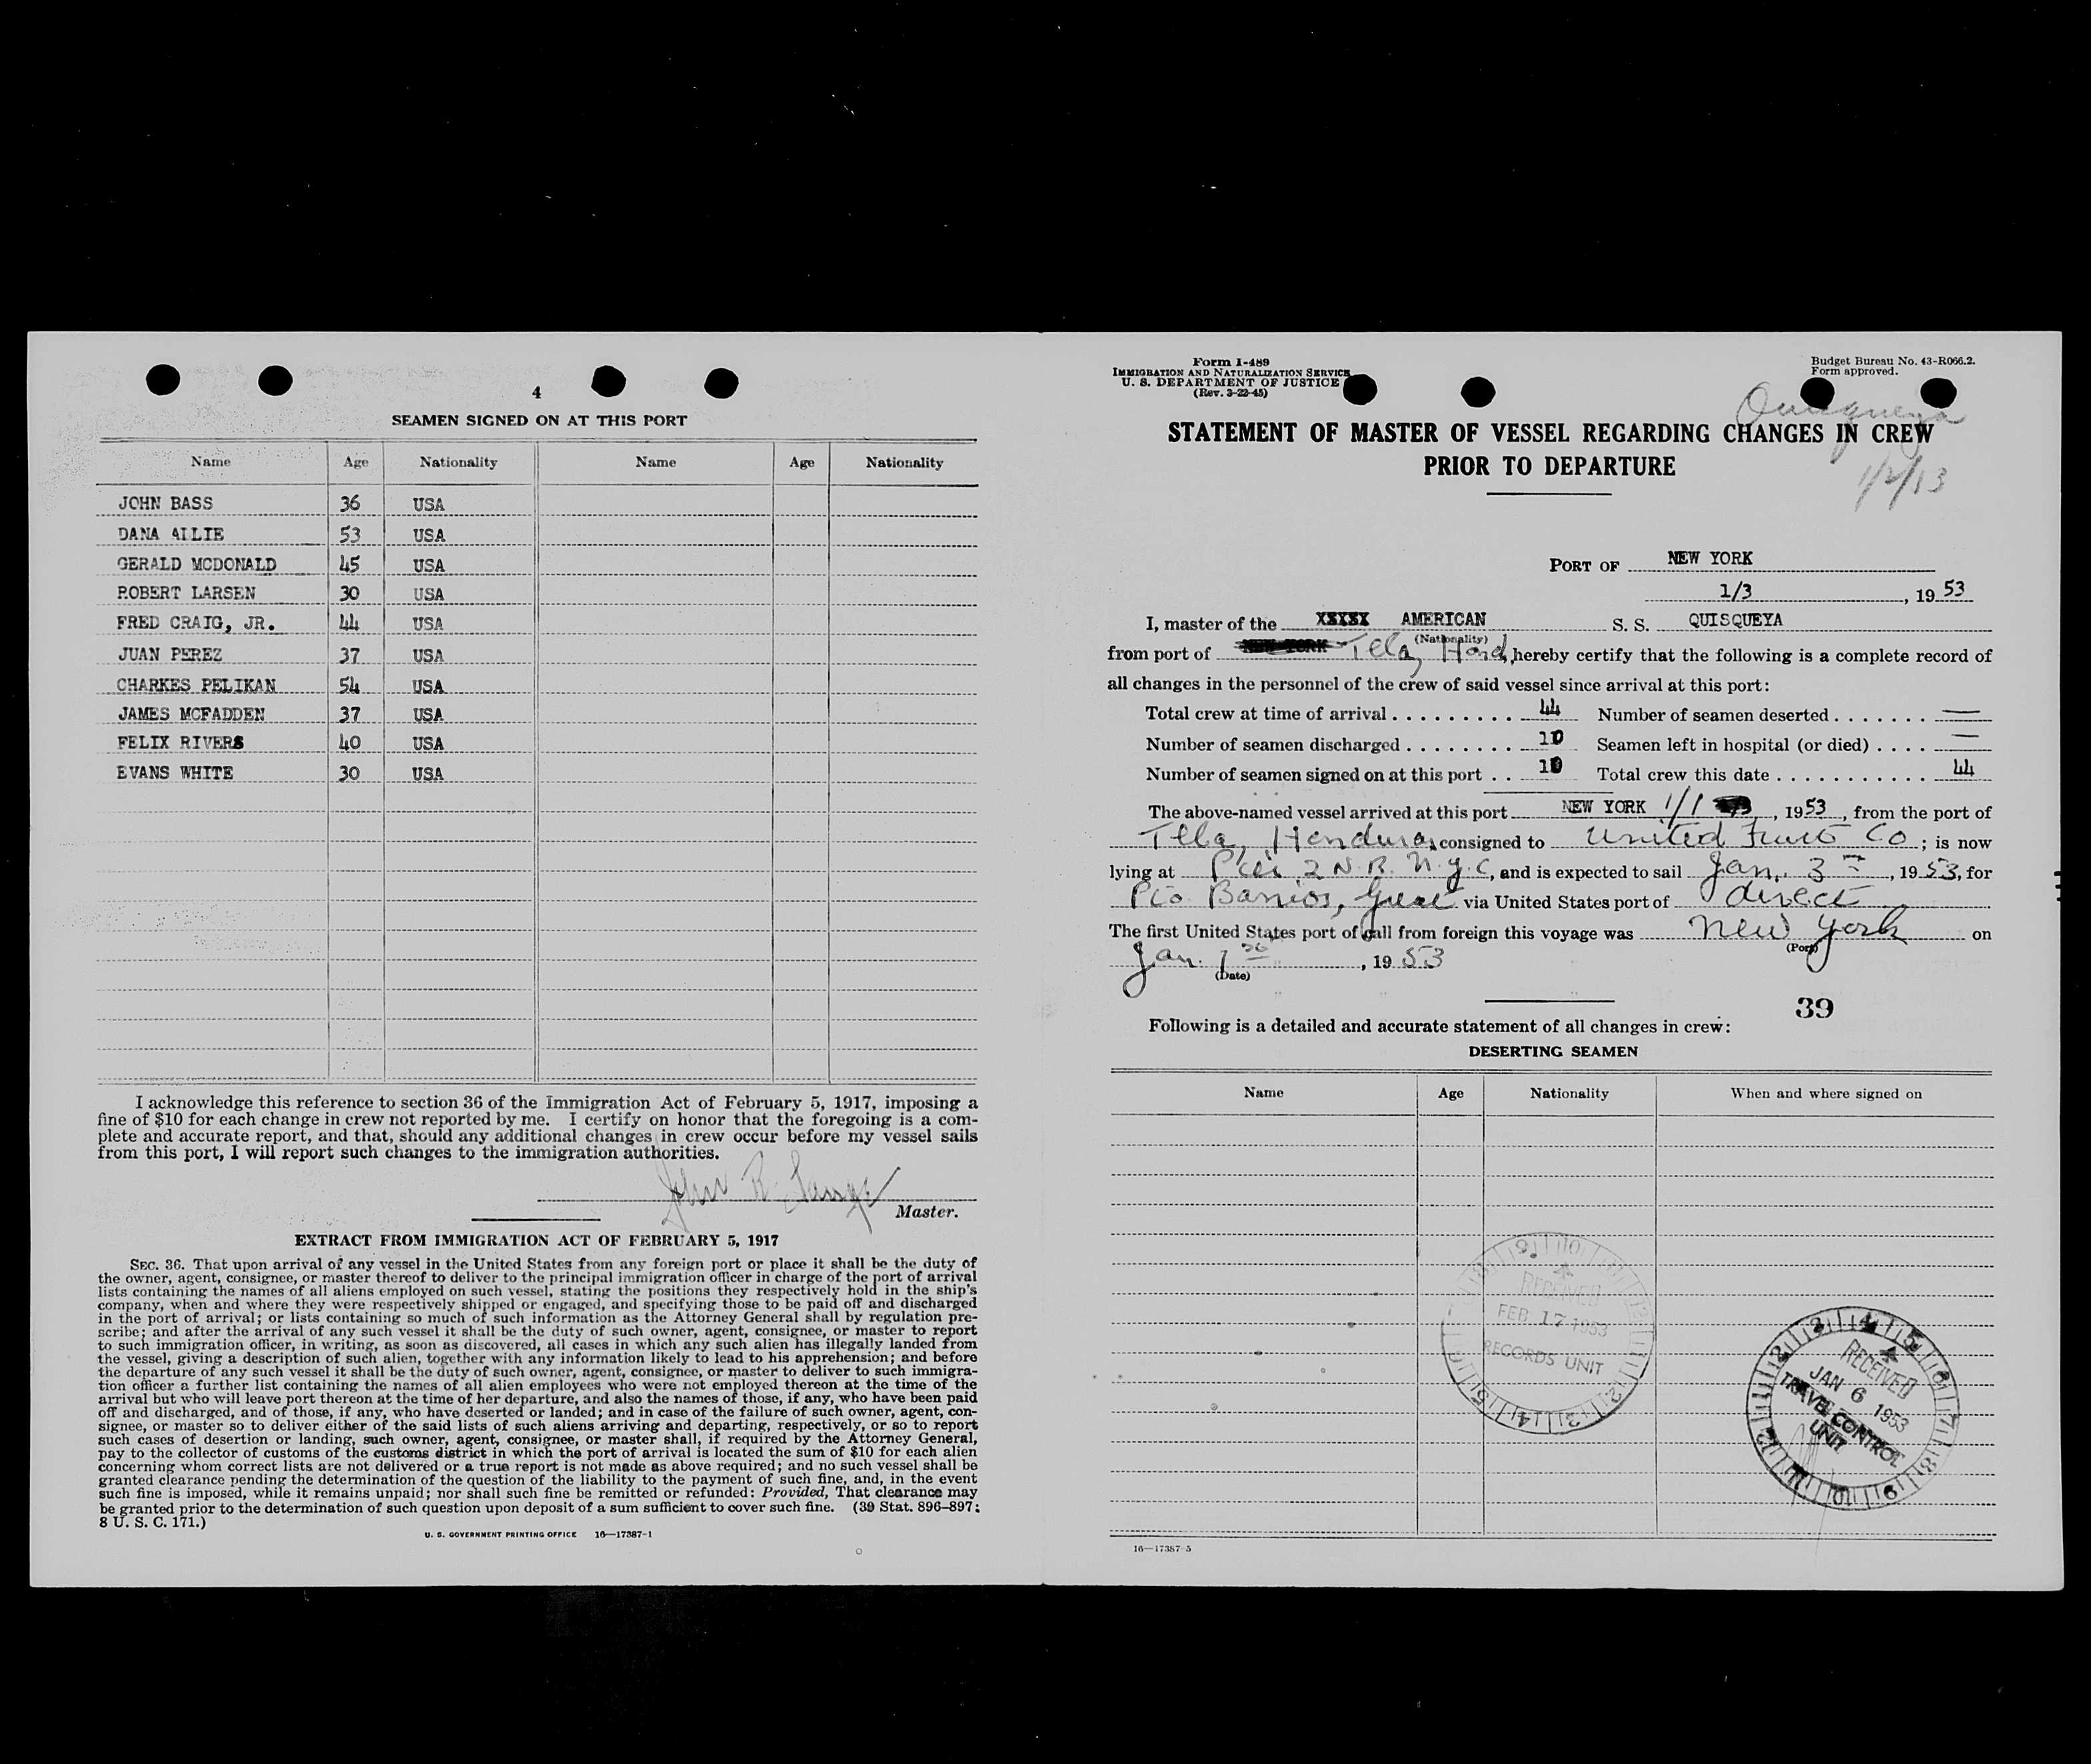 4
SEAMEN SIGNED ON AT THIS PORT
Name Age Nationality Name Age Nationality
JOHN BASS 36 USA
DANA ALLIE 53 USA
GERALD MCDONALD 45 USA
ROBERT LARSEN 30 USA
FRED CRAIG, JR. 44 USA
JUAN PEREZ 37 USA
CHARKES PELIKAN 54 USA
JAMES MCFADDEN 37 USA
FELIX RIVERS 40 USA
EVANS WHITE 30 USA
I acknowledge this reference to section 36 of the Immigration Act of February 5, 1917, imposing a
fine of $10 for each change in crew not reported by me. I certify on honor that the foregoing is a com-
plete and accurate report, and that, should any additional changes in crew occur before my vessel sails
from this port, I will report such changes to the immigration authorities.
John R.
Master.
EXTRACT FROM IMMIGRATION ACT OF FEBRUARY 5, 1917
SEC. 36. That upon arrival of any vessel in the United States from any foreign port or place it shall be the duty of
the owner, agent, consignee, or master thereof to deliver to the principal immigration officer in charge of the port of arrival
lists containing the names of all aliens employed on such vessel, stating the positions they respectively hold in the ship's
company, when and where they were respectively shipped or engaged, and specifying those to be paid off and discharged
in the port of arrival; or lists containing so much of such information as the Attorney General shall by regulation pre-
scribe; and after the arrival of any such vessel it shall be the duty of such owner, agent, consignee, or master to report
to such immigration officer, in writing, as soon as discovered, all cases in which any such alien has illegally landed from
the vessel, giving a description of such alien, together with any information likely to lead to his apprehension; and before
the departure of any such vessel it shall be the duty of such owner, agent, consignee, or master to deliver to such immigra-
tion officer a further list containing the names of all alien employees who were not employed thereon at the time of the
arrival but who will leave port thereon at the time of her departure, and also the names of those, if any, who have been paid
off and discharged, and of those, if any, who have deserted or landed; and in case of the failure of such owner, agent, con-
signee, or master so to deliver either of the said lists of such aliens arriving and departing, respectively, or so to report
such cases of desertion or landing, such owner, agent, consignee, or master shall, if required by the Attorney General,
pay to the collector of customs of the customs district in which the port of arrival is located the sum of $10 for each alien
concerning whom correct lists are not delivered or a true report is not made as above required; and no such vessel shall be
granted clearance pending the determination of the question of the liability to the payment of such fine, and, in the event
such fine is imposed, while it remains unpaid; nor shall such fine be remitted or refunded: Provided, That clearance may
be granted prior to the determination of such question upon deposit of a sum sufficient to cover such fine. (39 Stat. 896–897;
8 U. S. C. 171.)
U. S. GOVERNMENT PRINTING OFFICE 16—17387-1
Form I-489
IMMIGRATION AND NATURALIZATION SERVICE
U. S. DEPARTMENT OF JUSTICE
(Rev. 3-22-45)
Budget Bureau No. 43-R066.2.
Form approved.
Quisqueya
STATEMENT OF MASTER OF VESSEL REGARDING CHANGES IN CREW
PRIOR TO DEPARTURE
PORT OF NEW YORK
1/3, 1953
I, master of the XXXXX AMERICAN S. S. QUISQUEYA
(Nationality)
from port of NEW YORK Tela, Hond, hereby certify that the following is a complete record of
all changes in the personnel of the crew of said vessel since arrival at this port:
Total crew at time of arrival . . . . . . . . . 44 Number of seamen deserted . . . . . . . —
Number of seamen discharged . . . . . . . . 10 Seamen left in hospital (or died) . . . . —
Number of seamen signed on at this port . . 10 Total crew this date . . . . . . . . . . . . 44
The above-named vessel arrived at this port NEW YORK 1/1, 1953, from the port of
Tela, Honduras consigned to United Fruit Co; is now
lying at Pier 2 N.R. N.Y.C, and is expected to sail Jan. 3, 1953, for
Pto Barrios, via United States port of direct
The first United States port of call from foreign this voyage was New York on
(Port)
Jan. 1st, 1953
(Date)
39
Following is a detailed and accurate statement of all changes in crew:
DESERTING SEAMEN
Name Age Nationality When and where signed on
RECEIVED
FEB 17 1953
RECORDS UNIT
RECEIVED
JAN 6 1953
TRAVEL CONTROL
UNIT
16—17387-5